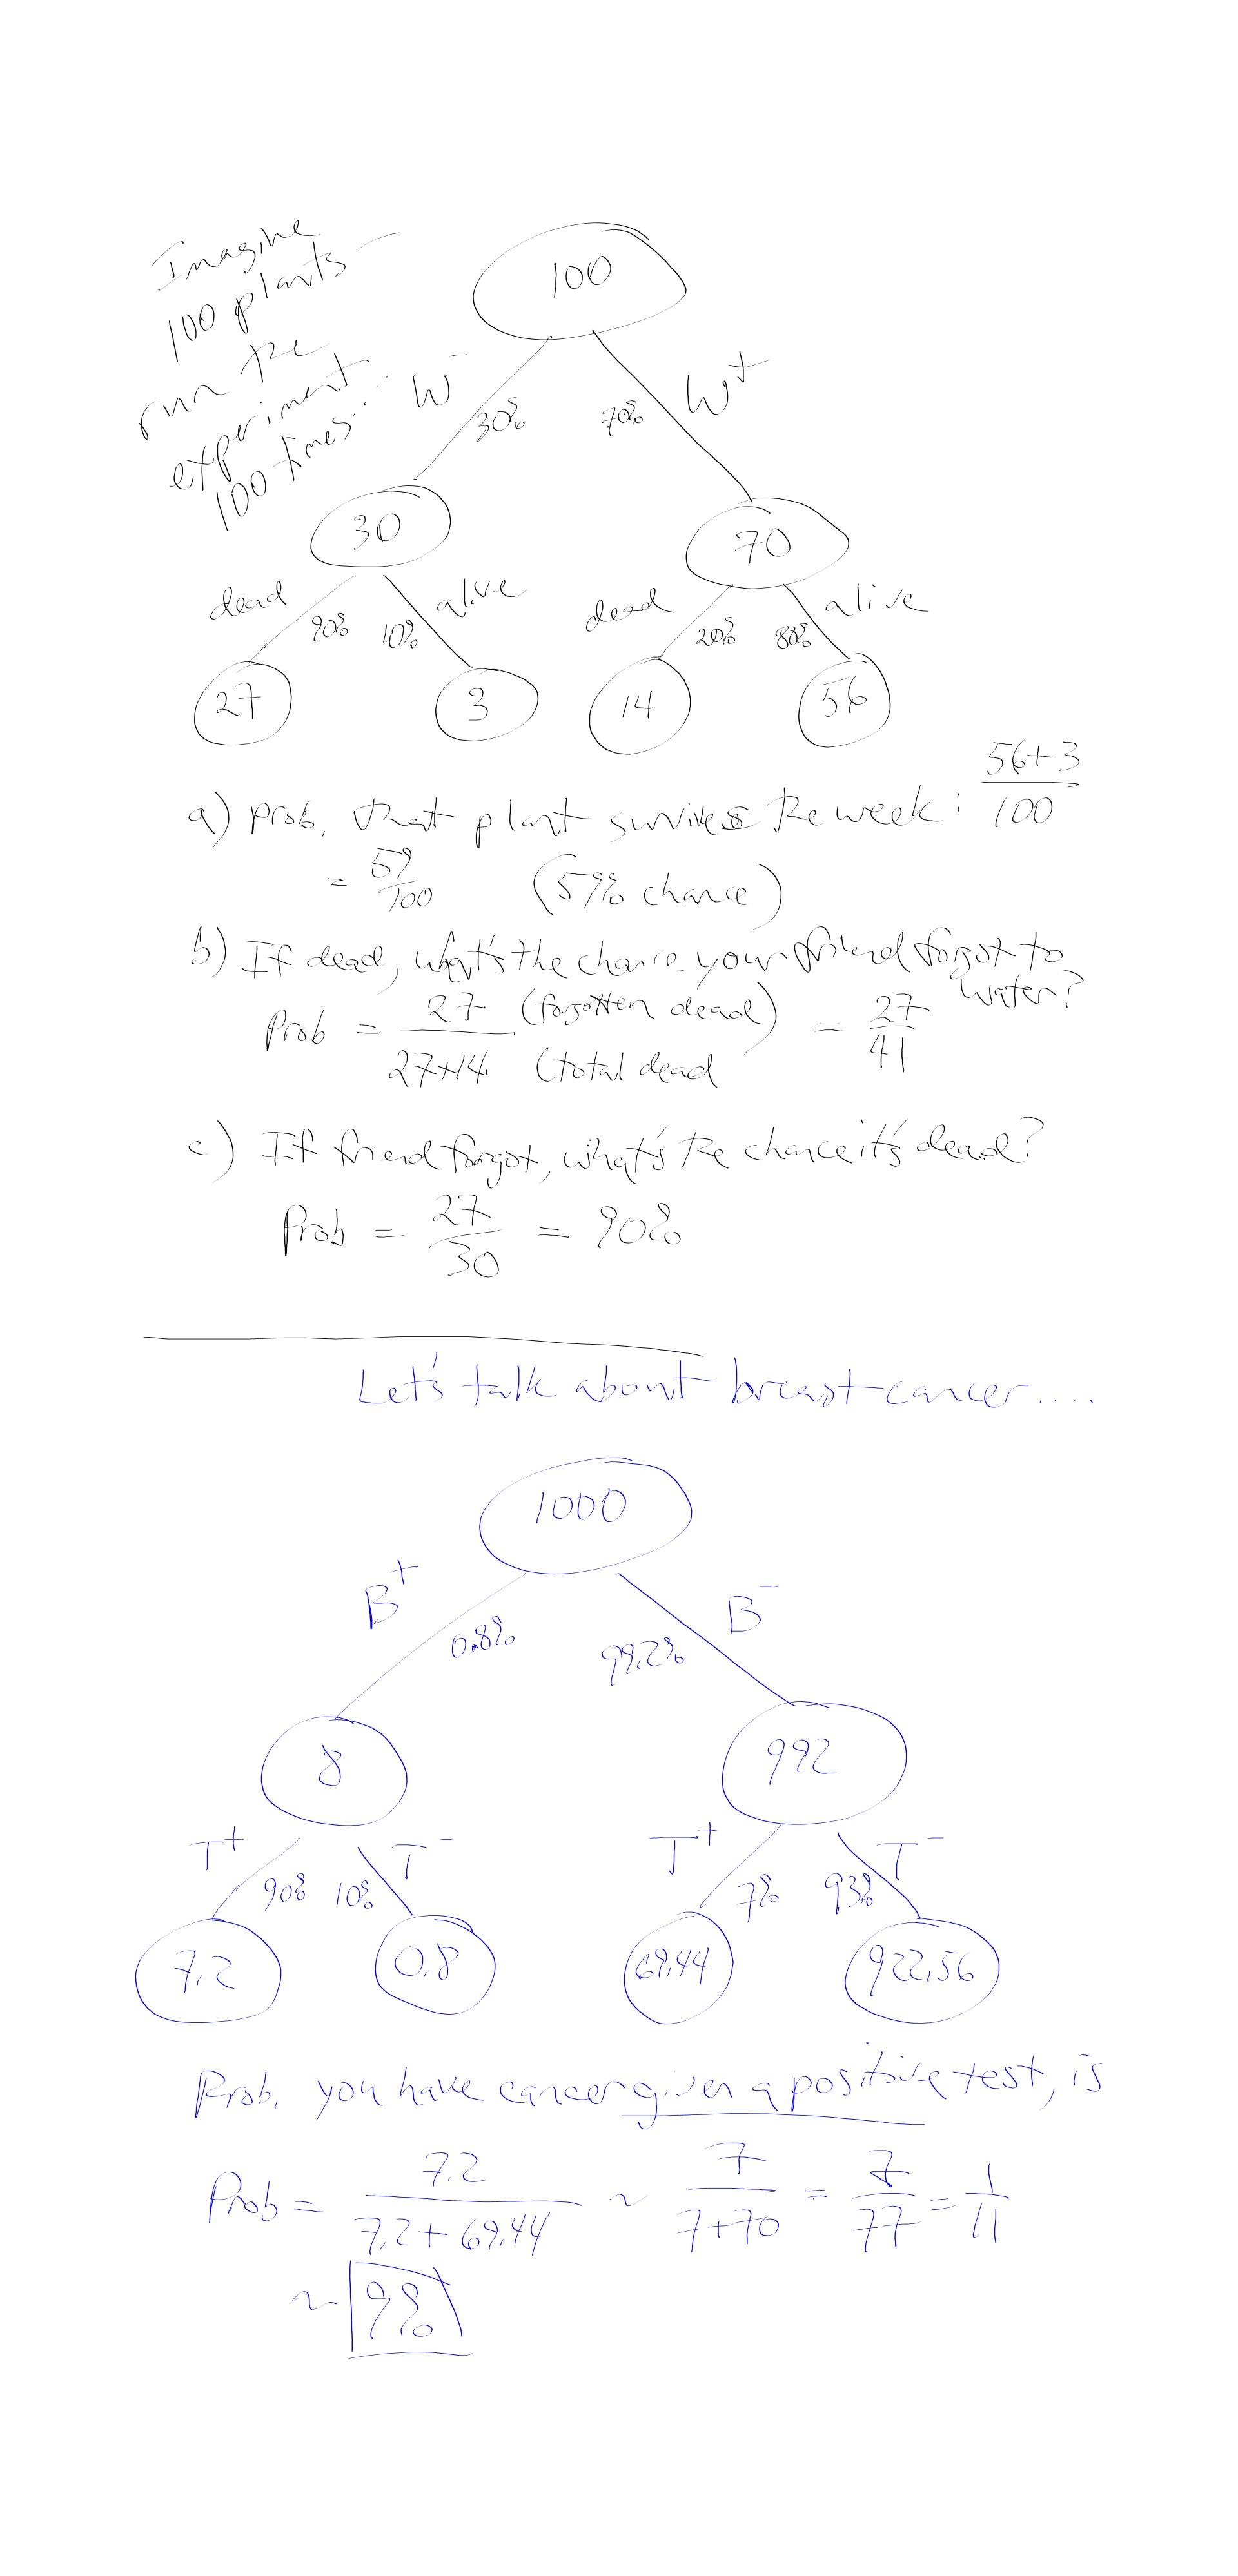 Imagine
100 plants —
run the
experiment
100 times...
100
W⁻ 30% 70% W⁺
30 70
dead 90% 10% alive dead 20% 80% alive
27 3 14 56
a) Prob. that plant survives the week: 56+3/100
= 59/100 (59% chance)
b) If dead, what's the chance your friend forgot to
water?
Prob = 27/27+14 (forgotten dead) (total dead = 27/41
c) If friend forgot, what's the chance it's dead?
Prob = 27/30 = 90%
Let's talk about breast cancer....
1000
B⁺ 0.8% 99.2% B⁻
8 992
T⁺ 90% 10% T⁻ T⁺ 7% 93% T⁻
7.2 0.8 69.44 922.56
Prob. you have cancer given a positive test, is
Prob = 7.2/7.2+69.44 ~ 7/7+70 = 7/77 = 1/11
~ 9%